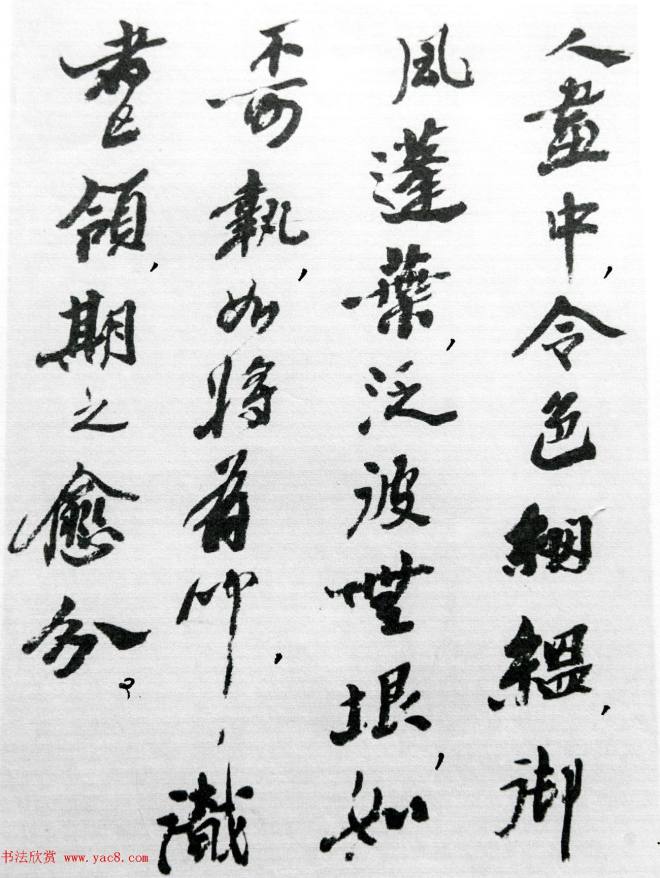 人畫中，令色絪縕，御
風蓬葉，泛彼無垠，如
不可執，如將有聞，識
者已領，期之愈分。
书法欣赏 www.yac8.com